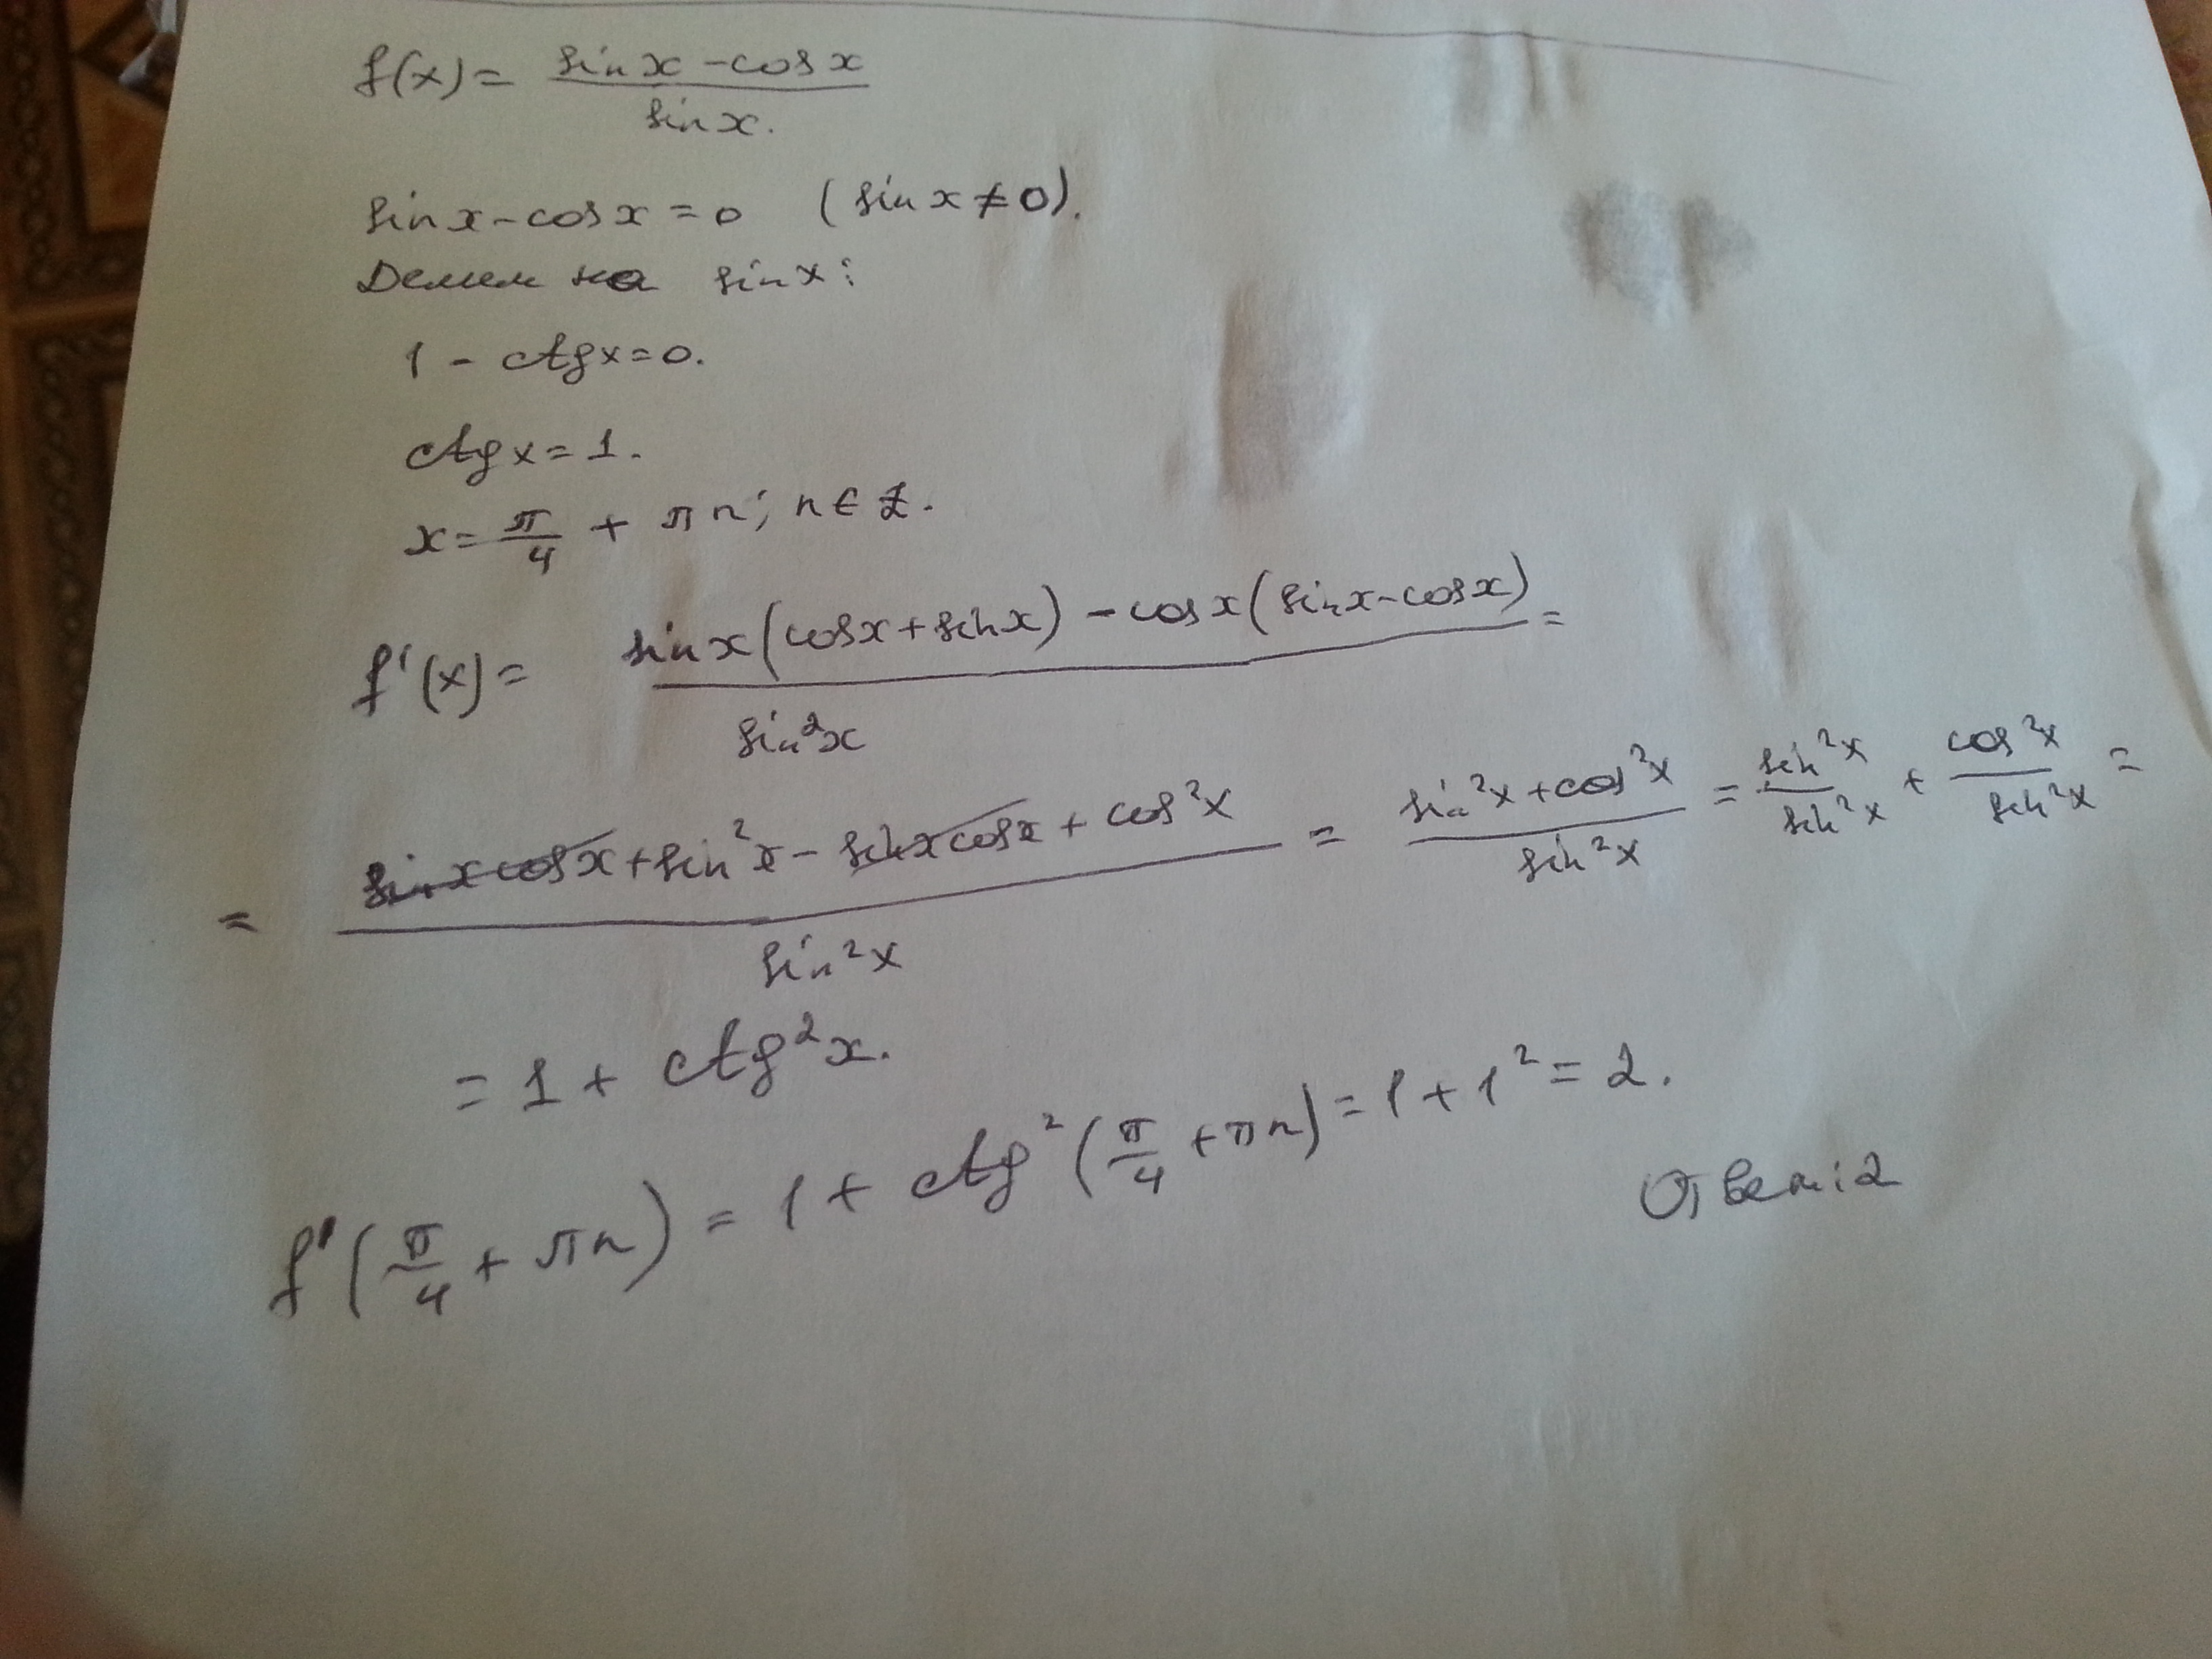 f(x) = (sin x - cos x) / sin x.
sin x - cos x = 0 (sin x ≠ 0).
Делим на sin x:
1 - ctg x = 0.
ctg x = 1.
x = π/4 + πn; n ∈ Z.
f'(x) = (sin x (cos x + sin x) - cos x (sin x - cos x)) / sin²x =
= (sin x cos x + sin²x - sin x cos x + cos²x) / sin²x = (sin²x + cos²x) / sin²x = sin²x / sin²x + cos²x / sin²x =
= 1 + ctg²x.
f'(π/4 + πn) = 1 + ctg²(π/4 + πn) = 1 + 1² = 2.
Ответ: 2